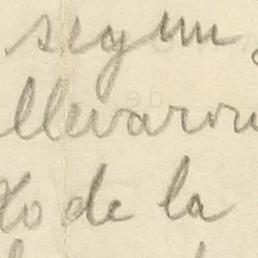 segun
llevaron
to de la